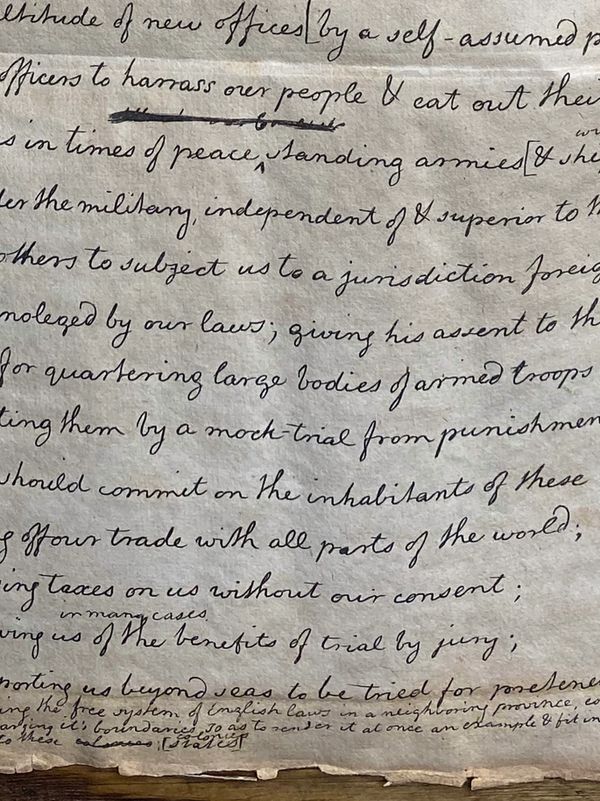 ltitude of new offices [by a self-assumed p
officers to harrass our people & eat out thei
s in times of peace, standing armies [& shi
der the military, independent of & superior to th
others to subject us to a jurisdiction foreig
noleged by our laws; giving his assent to th
for quartering large bodies of armed troops
ting them by a mock-trial from punishmen
should commit on the inhabitants of these
g off our trade with all parts of the world;
ing taxes on us without our consent;
in many cases
ving us of the benefits of trial by jury;
porting us beyond seas to be tried for pretene
ing the free system of English laws in a neighboring province, es
arging it's boundaries so as to render it at once an example & fit in
colonies
to these [states]